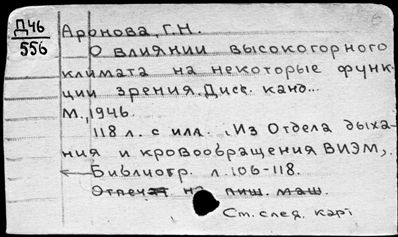 Д46
556
Аронова, Г.Н.
О влиянии высокогорного
климата на некоторые функ-
ции зрения. Дисс. канд...
М., 1946.
118 л. с илл. (Из Отдела дыха-
ния и кровообращения ВИЭМ).
Библиогр. л. 106-118.
Отпечат на пиш. маш.
См. след. карт